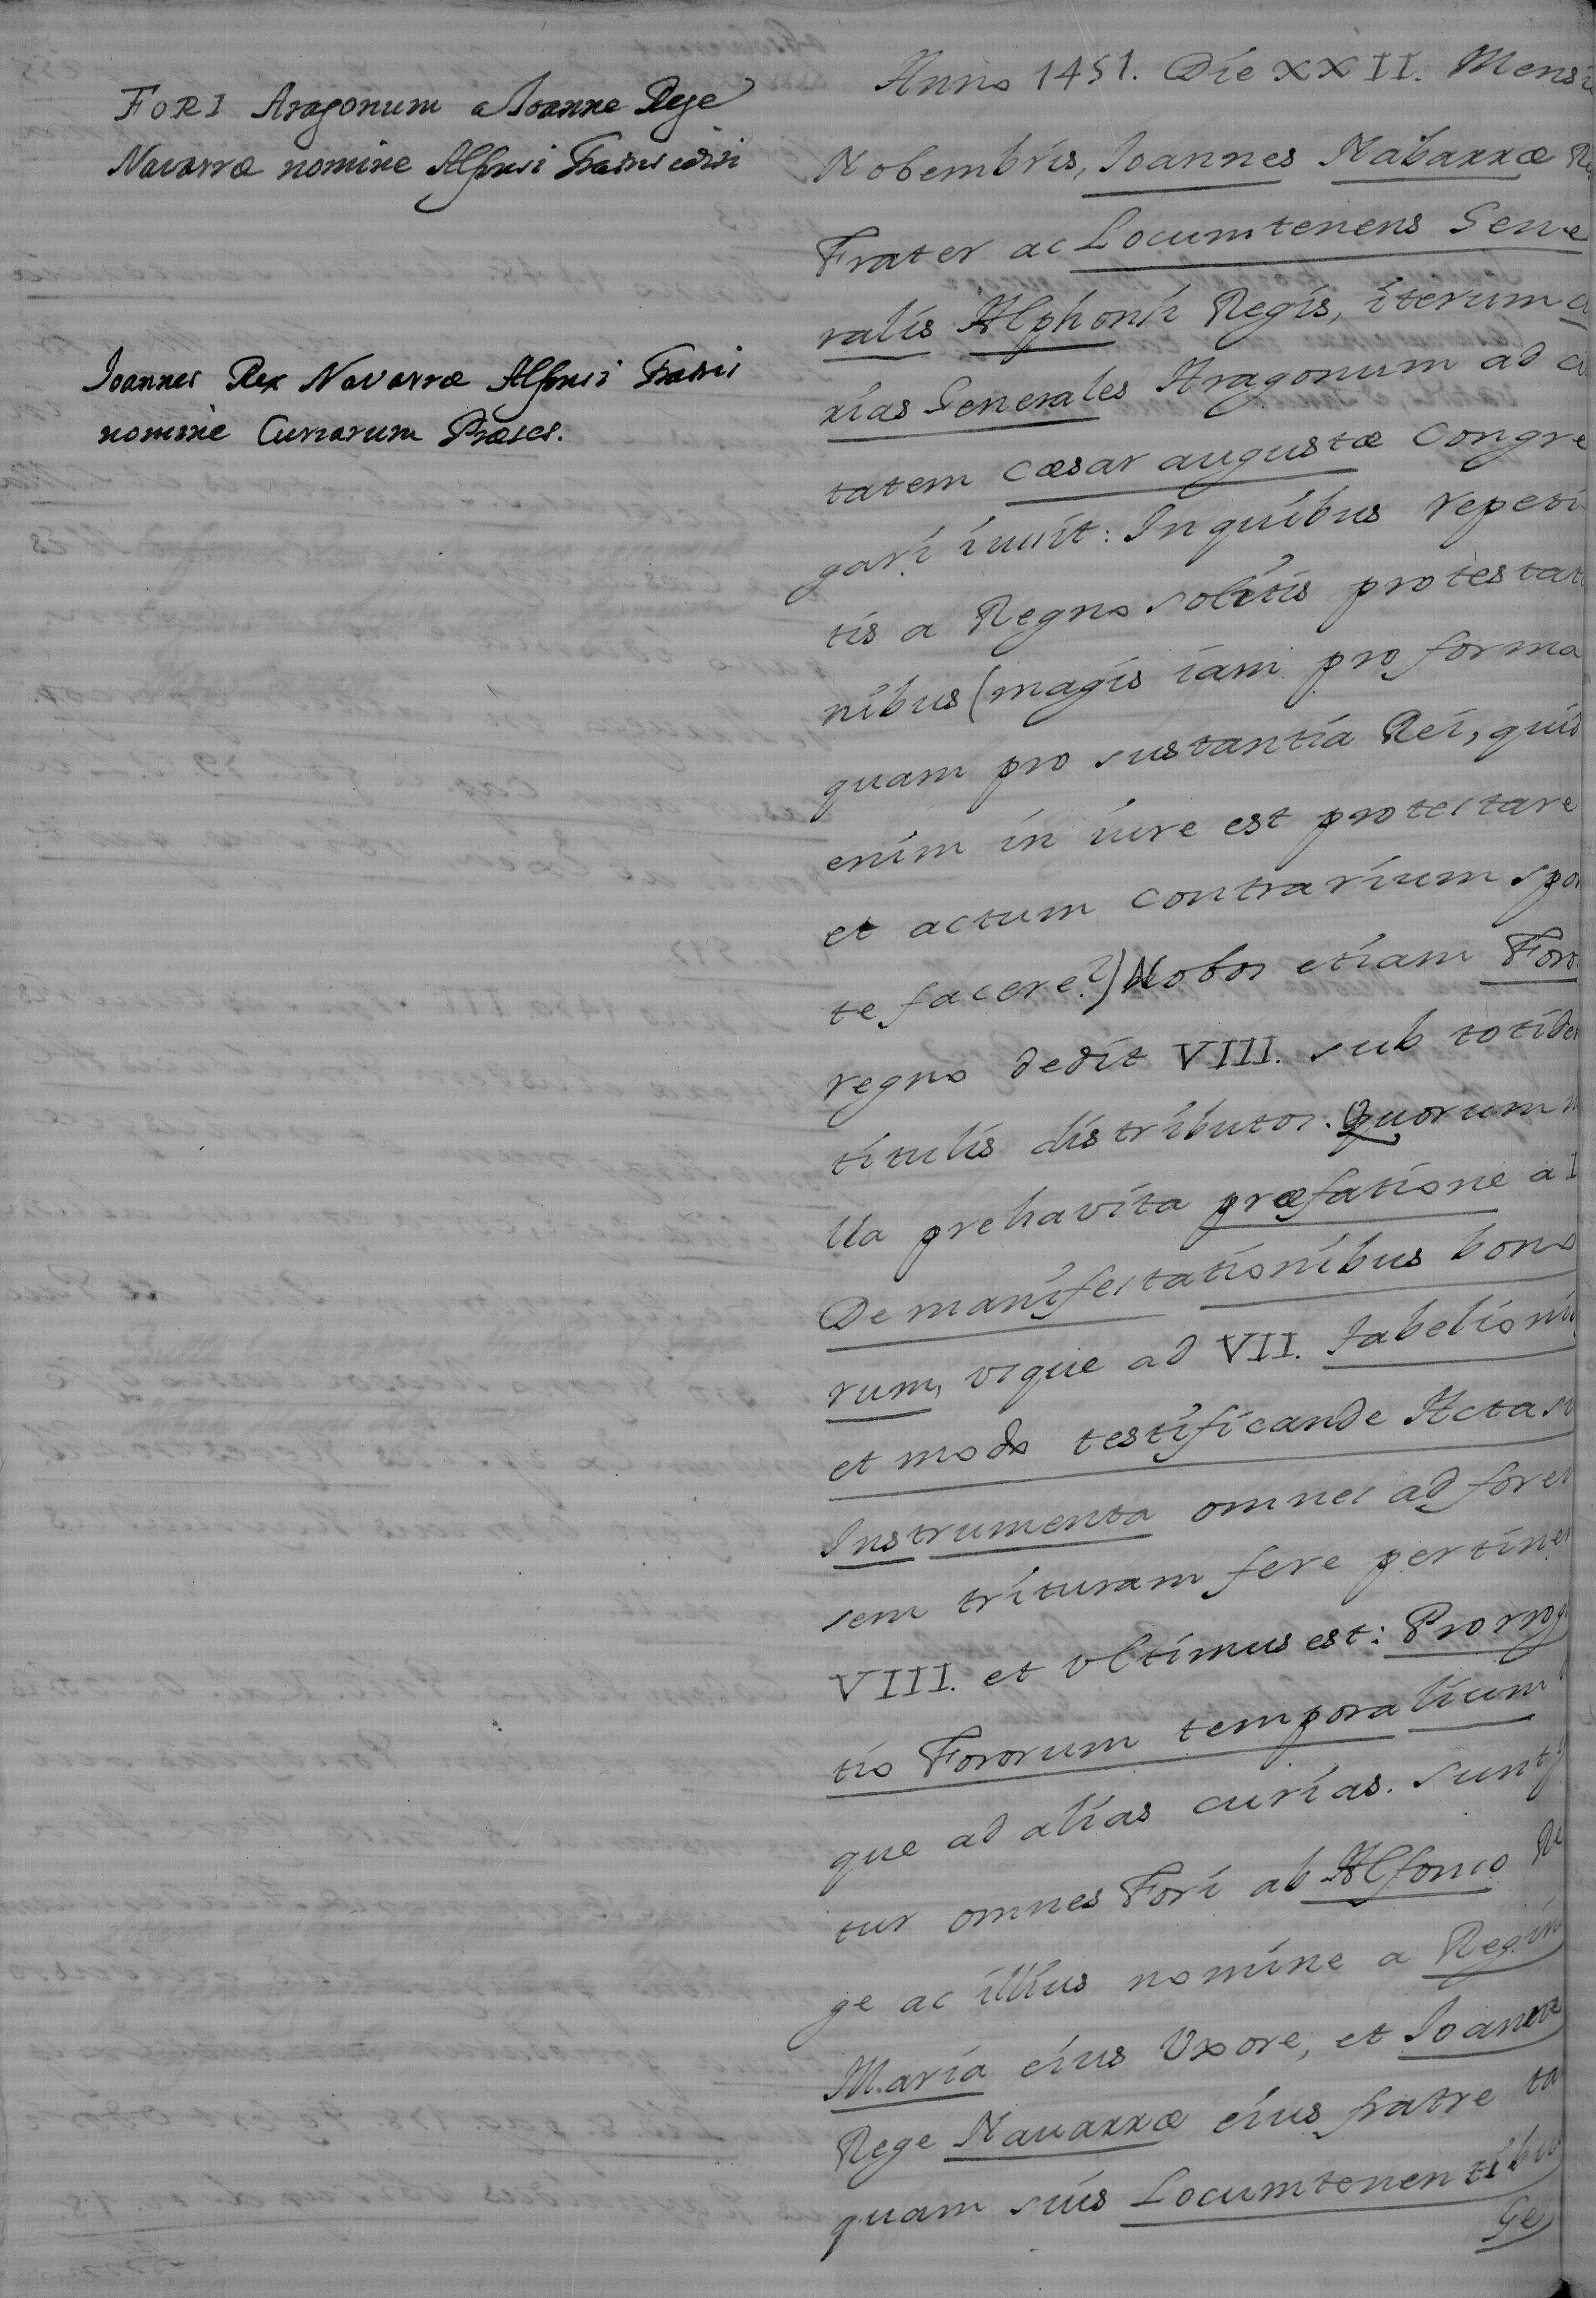 FORI Aragonum a Ioanne Rege
Navarræ nomine Alfonsi Fratris editi
Ioannes Rex Navarræ Alfonsi Fratris
nomine Curiarum Præses.
Anno 1451. Die XXII. Mensi
Nobembris, Ioannes Nabarræ Re
Frater ac Locumtenens Gene
ralis Alphonsi Regis, iterum cu
rias Generales Aragonum ad ci
tatem Cæsar augustæ Congre
gari iussit: In quibus repeti
tis a Regno solitis protestati
nibus (magis iam pro forma
quam pro sustantia Rei, quid
enim in iure est protestare
et actum contrarium spon
te facere?) Nobos etiam Foro
regno dedit VIII. sub totidem
titulis distributos. Quorum n
lla prehavita præfatione a I
De manifestationibus bono
rum, vsque ad VII. Tabelionu
et modo testificande Acta su
Instrumenta omnes ad foren
sem trituram fere pertinen
VIII. et vltimus est: Prorroga
tio Fororum temporalium
que ad alias curias. Sunt
tur omnes Fori ab Alfonso Re
ge ac illius nomine a Regin
Maria eius Vxore, et Ioanne
Rege Nauarræ eius fratre ta
quam suis Locumtenentibu
Ge